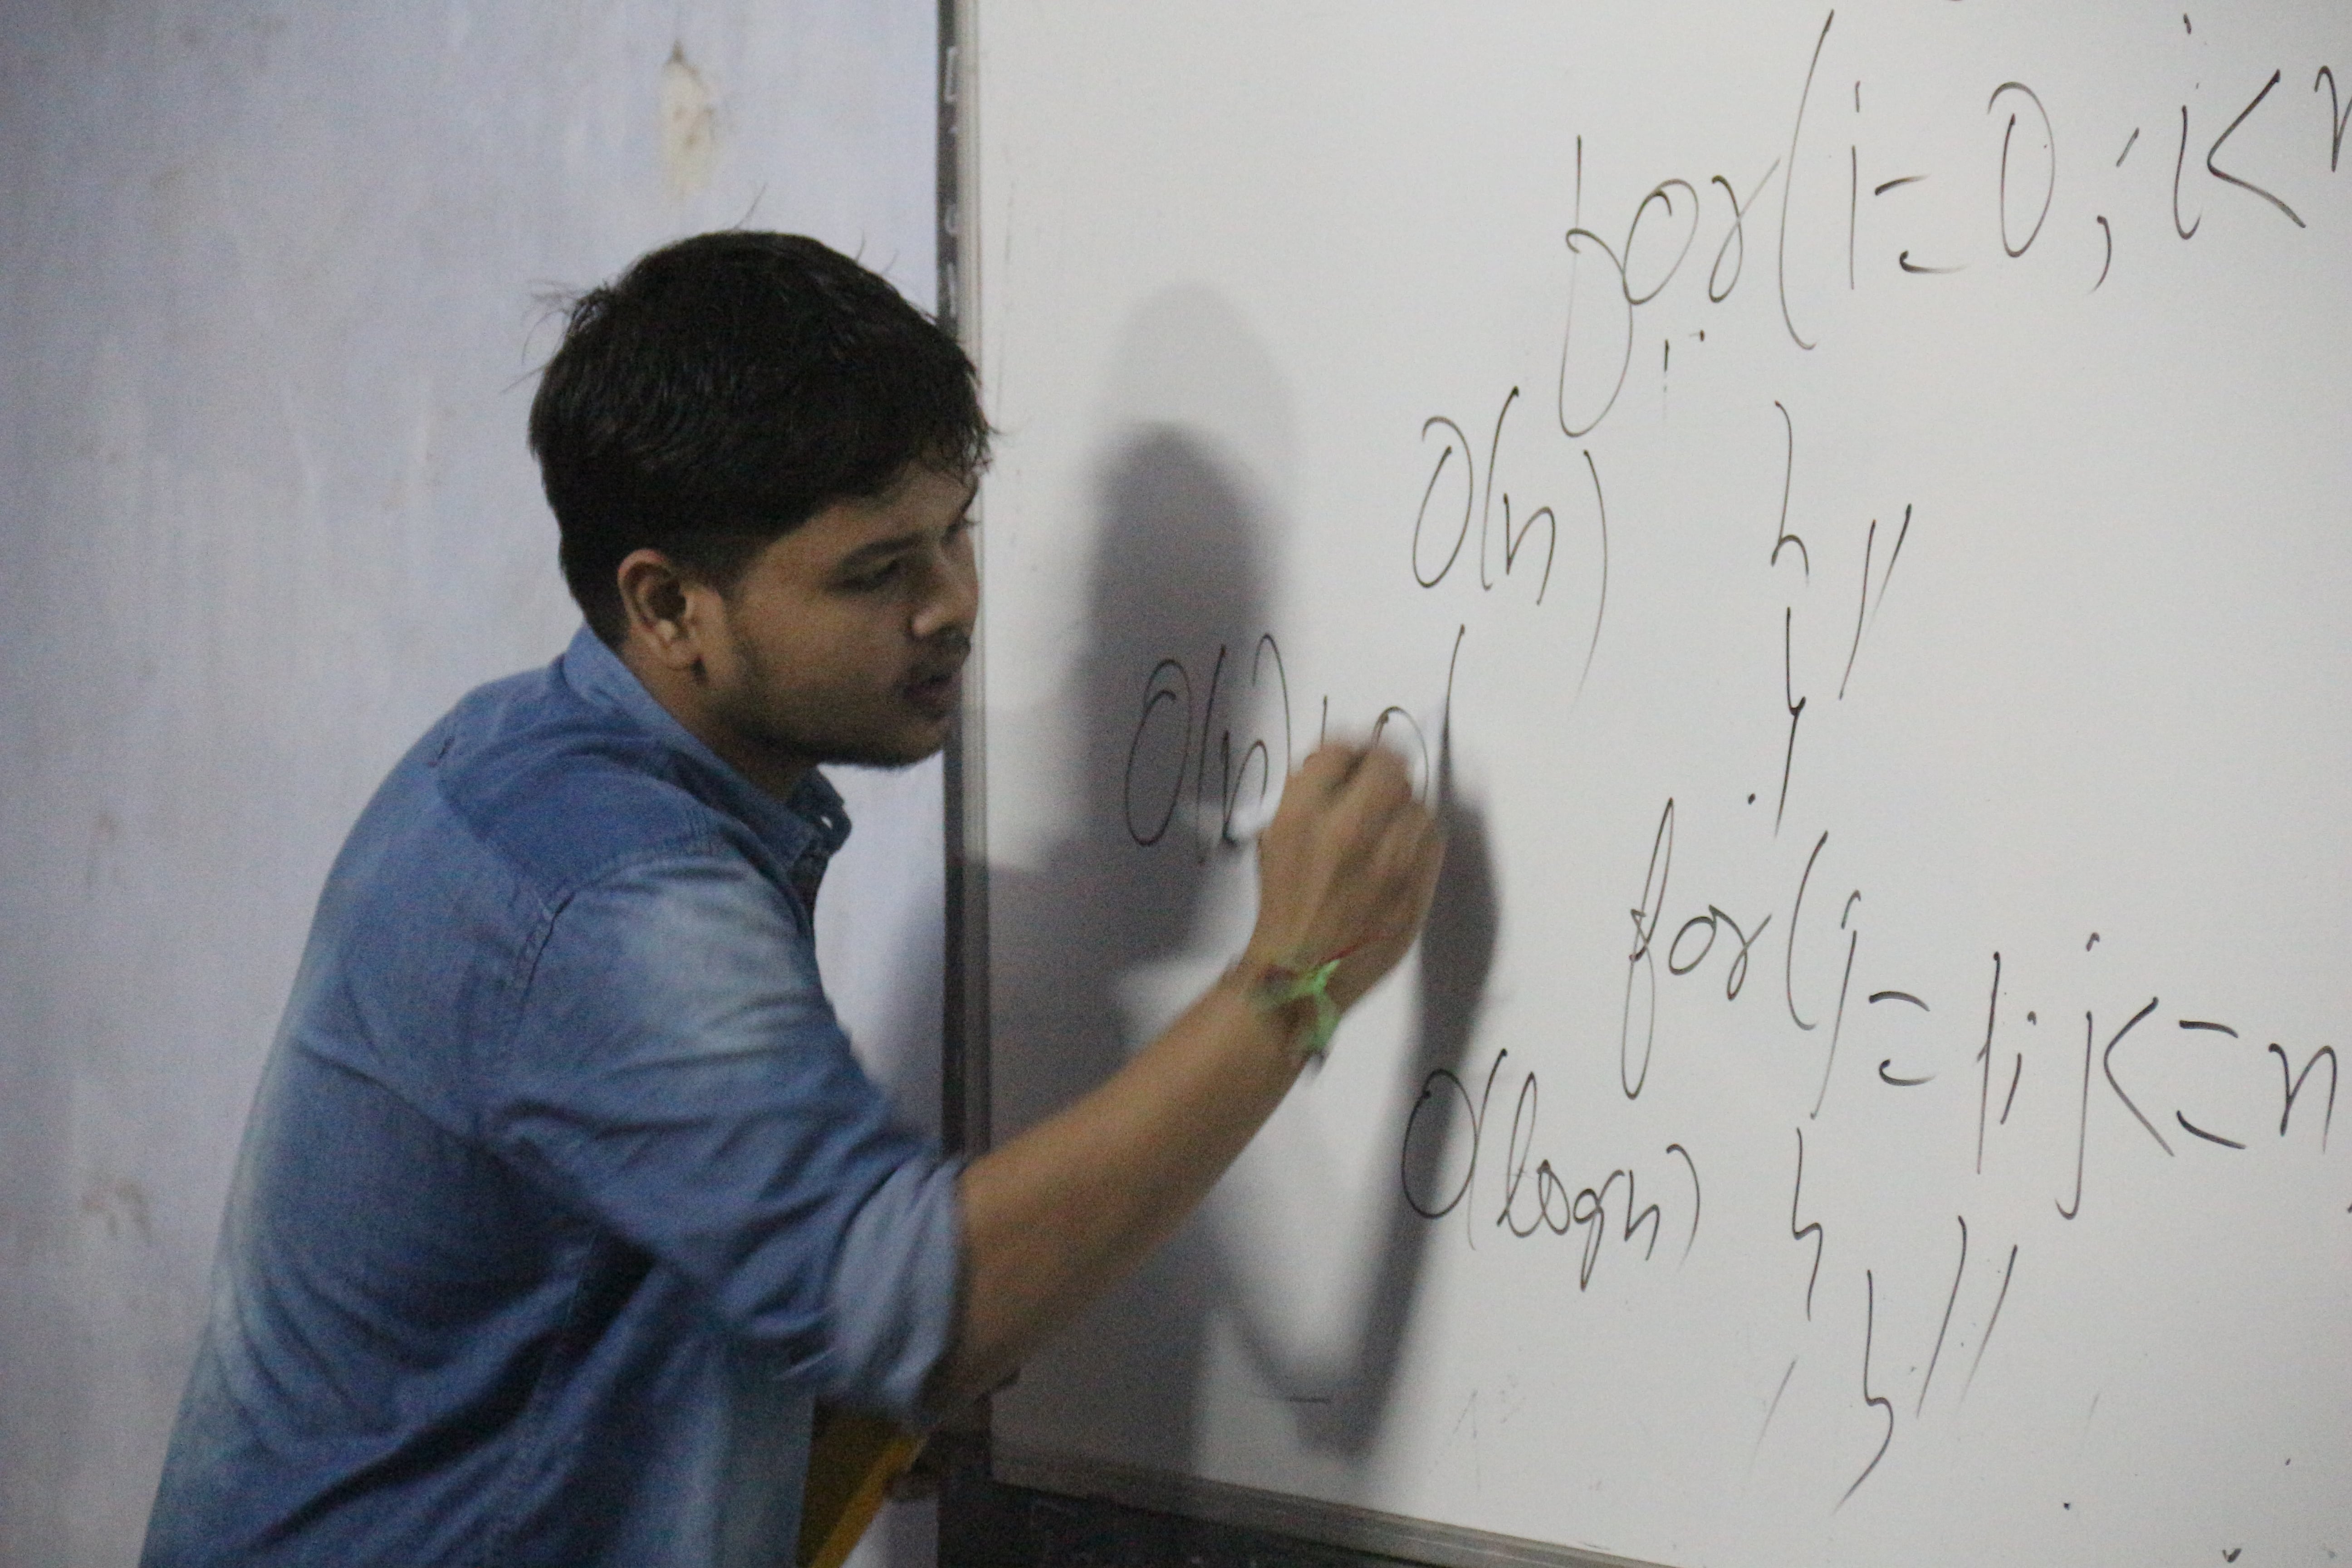 for(i=0; i<n
O(n) {
}
O(n)+O(
for(j=1; j<=n
O(logn) {
}